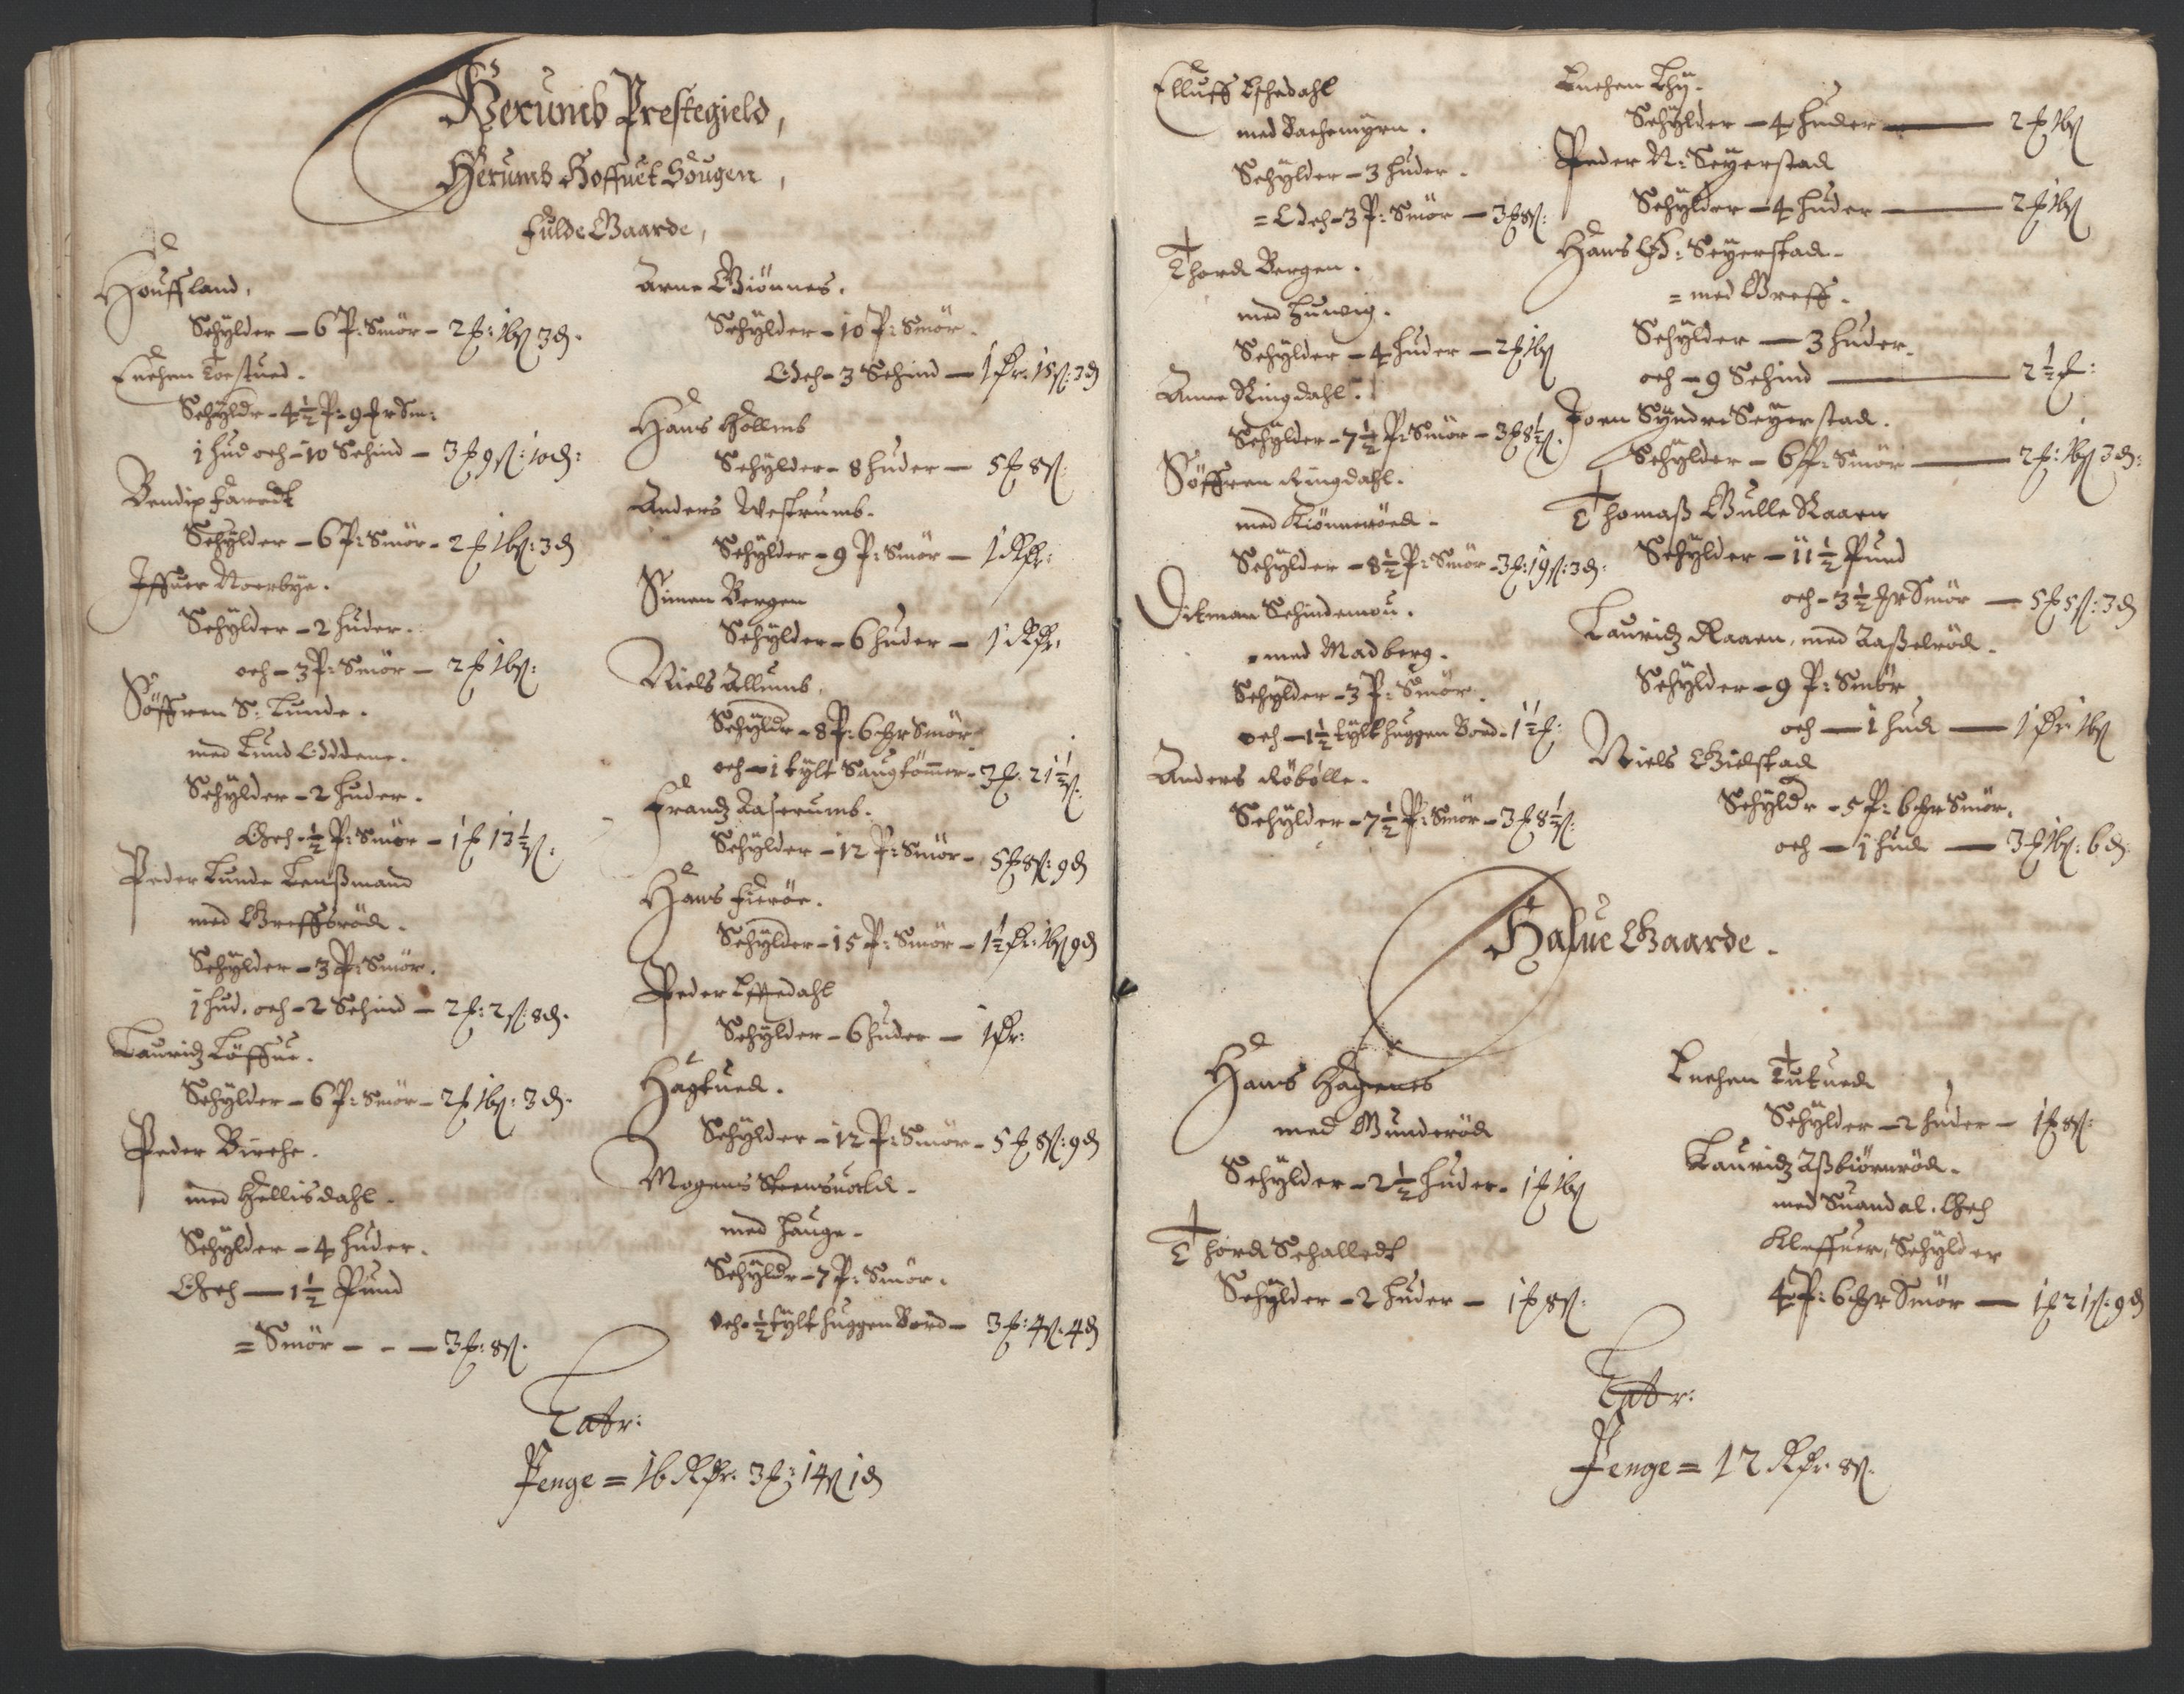 Berumb Prestegield,
Herumb Hoffuet Sougen,
Fulde Gaarde,
Houffland,
Schylder – 6 P: Smör – 2 f: 16 ß 3 d.
Enchen Toestued.
Schyldr – 4½ P: 9 mr Sm:
1 hud och – 10 Schind – 3 f 9 ß: 10 d:
Bendix
Schylder – 6 P: Smör – 2 f 16 ß: 3 d
Iffuer Noerbye.
Schylder – 2 huder.
och – 3 P: Smör – 2 f 16 ß:
Söffren S: Lunde.
med Lund Odddene.
Schylder – 2 huder.
Och – ½ P: Smör – 1 f 13½ ß:
Peder Lunde Lenßmand
med Greffsröd.
Schylder – 3 P: Smör.
1 hud. och – 2 Schind – 2 f: 2 ß: 8 d.
Lauridz Löffue.
Schylder – 6 P: Smör – 2 f 16 ß: 3 d.
Peder Birche.
med Hellisdahl.
Schylder – 4 huder.
Och — 1½ Pund
= Smör – – — 3 f: 8 ß.
Arne Giönnes.
Schylder – 10 P: Smör.
Och – 3 Schind — 1 dr: 15 ß: 3 d
Hans Hollimb
Schylder – 8 huder — 5 f 8 ß:
Anders Westrumb.
Schylder – 9 P: Smör — 1 Rdr:
Simen Bergen
Schylder – 6 huder — 1 Rdr:
Niels Ullumb.
Schyldr – 8 P: 6 mr Smör
och – 1 tylt Saugtömmer – 3 f. 21½ ß.
Frandz Aaserumb.
Schylder – 12 P: Smör – 5 f 8 ß: 9 d
Hans Fieröe.
Schylder – 15 P: Smör – 1½ dr: 16 ß 9 d
Peder Effedahl
Schylder – 6 huder — 1 dr:
Hagtued.
Schylder – 12 P: Smör – 5 f 8 ß: 9 d
Mogens Steensuold.
med Hauge.
Schyldr – 7 P: Smör.
och – ½ tylt huggen Bord – 3 f: 4 ß: 4 d
Latr:
Penge = 16 Rdr: 3 f: 14 ß 1 d
Elluff Eschedahl
med Bachemyrn.
Schylder – 3 huder.
= Och – 3 P: Smör — 3 f 8 ß:
Thord Bergen.
med Huwig.
Schylder – 4 huder – 2 f 16 ß
Anne Ringdahl.
Schylder – 7½ P: Smör – 3 f 8½ ß.
Söffren Ringdahl.
med Kiönneröed.
Schylder – 8½ P: Smör – 3 f: 19 ß: 3 d:
Ditman Schindemou.
= med Madberg.
Schylder – 3 P: Smör.
och – 1½ tylt huggen Bord – 1½ f:
Anders Röbölle.
Schylder – 7½ P: Smör – 3 f 8½ ß:
Enchen Thy.
Schylder – 4 huder — 2 f 16 ß
Peder N: Seyerstad
Schylder – 4 huder — 2 f 16 ß
Hans Ø: Seyerstad.
= med Greff.
Schylder — 3 huder.
och – 9 Schind — 2½ f:
Joen Syndre Seyerstad.
Schylder – 6 P: Smör — 2 f: 16 ß 3 d:
Thomaß Gulle Kaaen
Schylder – 11½ Pund
och – 3½ mr Smör — 5 f 5 ß: 3 d
Lauridz Kaaen, med Aaßelröd.
Schylder – 9 P: Smör
och — 1 hud — 1 dr: 16 ß
Niels Gielstad
Schyldr – 5 P: 6 mr Smör.
och — 1 hud — 3 f 16 ß: 6 d.
Halue Gaarde.
Hans Hagenes
med Gunderöd
Schylder – 2½ huder – 1 f 16 ß
Thord Schalledt
Schylder – 2 huder – 1 f 8 ß:
Enchen Tutued
Schylder – 2 huder – 1 f 8 ß:
Lauridz Aßbiörnröd.
med Suandal. Och
Kleffuer, Schylder
4 P: 6 mr Smör — 1 f 21 ß: 9 d
Latr:
Penge = 12 Rdr 8 ß.